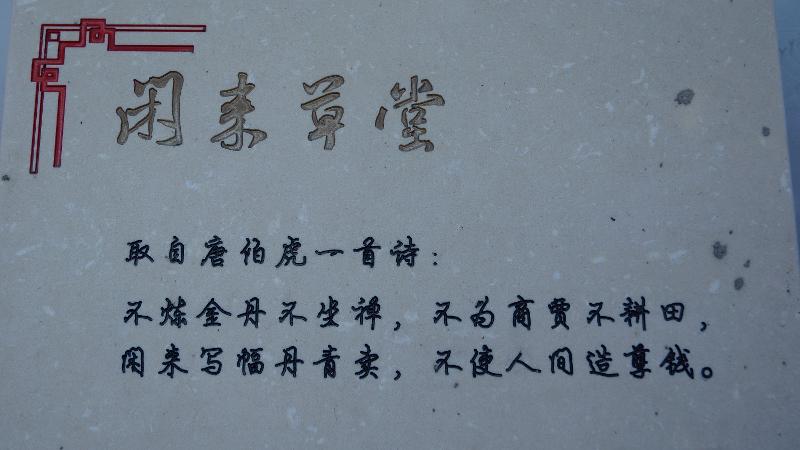 闲来草堂
取自唐伯虎一首诗：
不炼金丹不坐禅，不为商贾不耕田，
闲来写幅丹青卖，不使人间造孽钱。